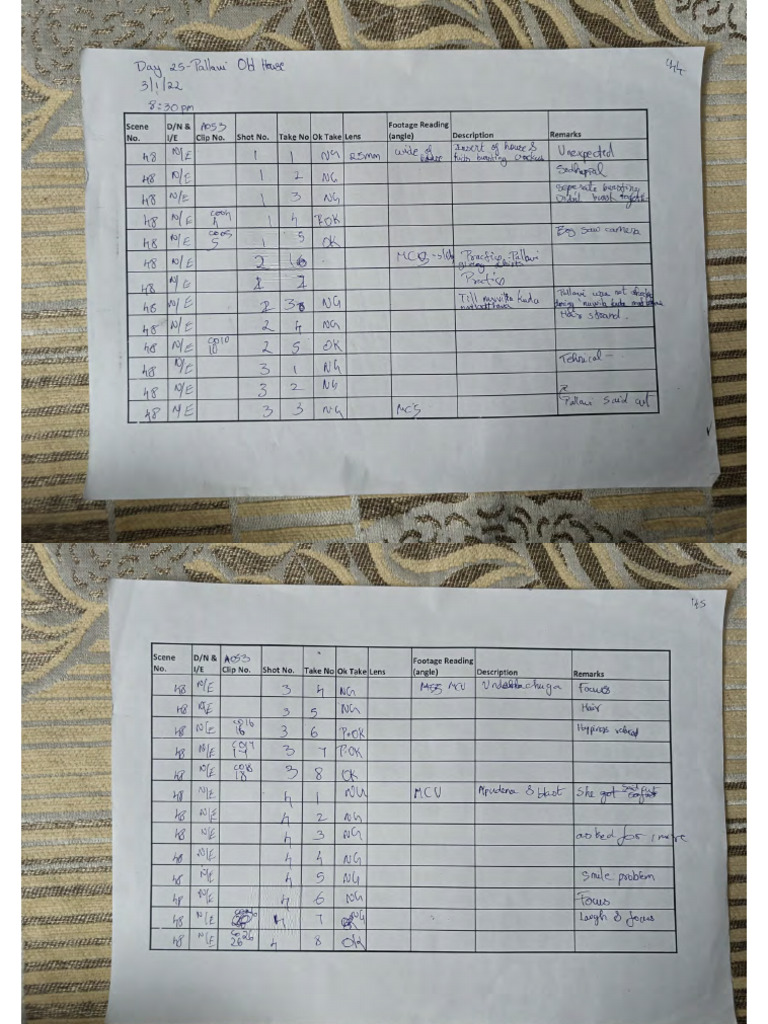 44
Day 25 - Pallavi Old House
3/1/22
8:30 pm
Scene No. D/N & I/E A053 Clip No. Shot No. Take No Ok Take Lens Footage Reading (angle) Description Remarks
48 N/E 1 1 NG 25mm wide of house Insert of house & Unexpected
48 N/E 1 2 NG
48 N/E 1 3 NG Seperate bursting
48 N/E C004 4 1 4 P.OK
48 N/E C005 5 1 5 OK Boy saw camera
48 N/E 2 1 Practice - Pallavi giving
48 N/E 2 2 Practice
48 N/E 2 3 NG Till kuda Pallavi was not
48 N/E 2 4 NG Hair strand.
48 N/E C010 10 2 5 OK
48 N/E 3 1 NG Tehnical -
48 N/E 3 2 NG
48 N/E 3 3 NG MCS Pallavi said cut
45
Scene No. D/N & I/E A053 Clip No. Shot No. Take No Ok Take Lens Footage Reading (angle) Description Remarks
48 N/E 3 4 NG MCU Focus
48 N/E 3 5 NG Hair
48 N/E C016 16 3 6 P.OK
48 N/E C017 17 3 7 P.OK
48 N/E C018 18 3 8 OK
48 N/E 4 1 NG MCU & blast She got
48 N/E 4 2 NG
48 N/E 4 3 NG asked for 1 more
48 N/E 4 4 NG
48 N/E 4 5 NG Smile problem
48 N/E 4 6 NG Focus
48 N/E 4 7 NG Laugh & focus
48 N/E C026 26 4 8 OK